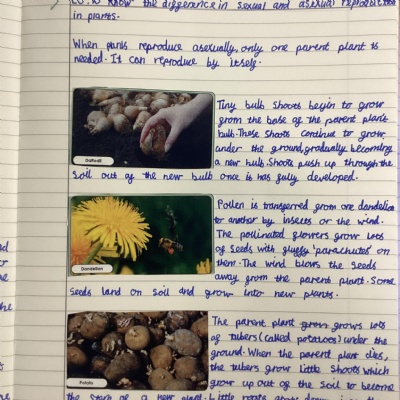 LO: to know the difference in sexual and asexual reproduction
in plants.
When plants reproduce asexually, only one parent plant is
needed. It can reproduce by itself.
Tiny bulb shoots begin to grow
from the base of the parent plants
bulb. These shoots continue to grow
under the ground, gradually becoming
a new bulb. Shoots push up through the
Daffodil
soil out of the new bulb once is has fully developed.
Pollen is transferred from one dandelion
to another by insects or the wind.
The pollinated flowers grow lots
of seeds with fluffy 'parachutes' on
them. The wind blows the seeds
Dandelion
away from the parent plant. Some
seeds land on soil and grow into new plants.
The parent plant grows lots
of tubers (called potatoes) under the
ground. When the parent plant dies,
the tubers grow little shoots which
Potato
grow up out of the soil to become
the stem of a new plant. Little roots grow down into the